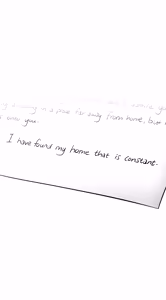 in a place far away from home, but
you.
I have found my home that is constant.